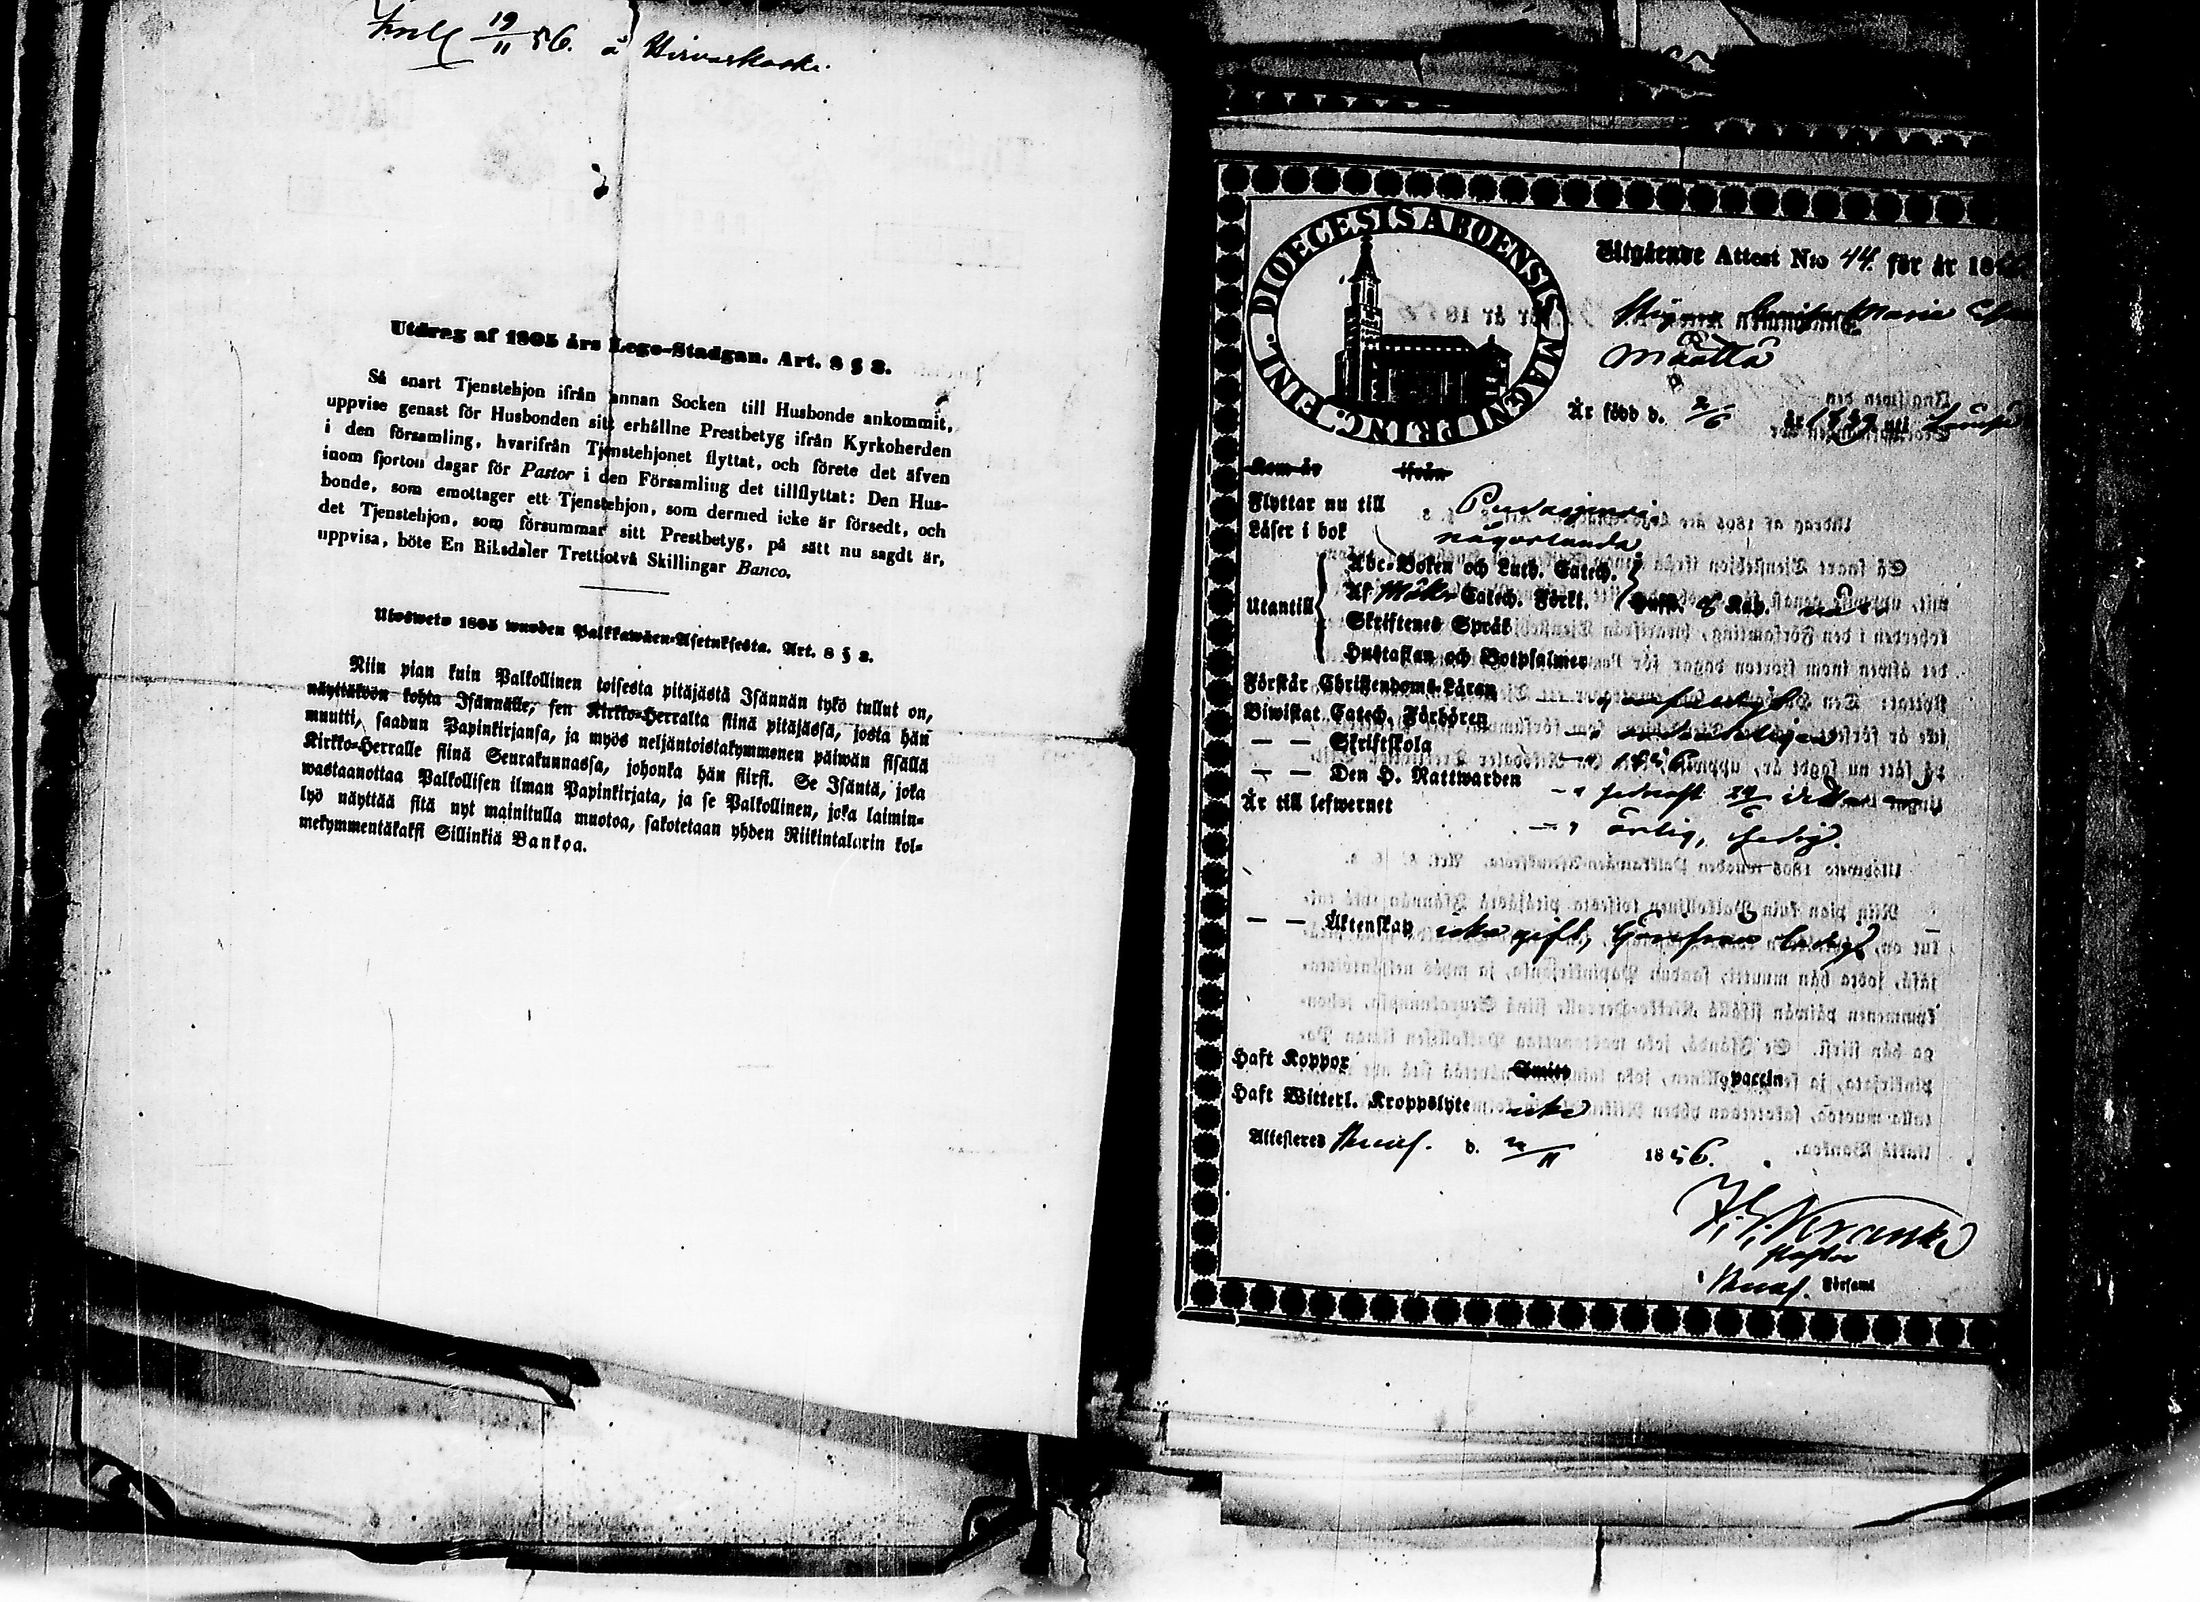 19/11 56. å Hirvaskoski.
Utdrag af 1805 års Lego-Stadgan. Art. 8 § 2.
Så snart Tjenstehjon ifrån annan Socken till Husbonde ankommit,
uppvise genast för Husbonden sitt erhållne Prestbetyg ifrån Kyrkoherden
i den församling, hvarifrån Tjenstehjonet flyttat, och förete det äfven
inom fjorton dagar för Pastor i den Församling det tillflyttat: Den Hus-
bonde, som emottager ett Tjenstehjon, som dermed icke är försedt, och
det Tjenstehjon, som försummar sitt Prestbetyg, på sätt nu sagdt är,
uppvisa, böte En Riksdaler Trettiotvå Skillingar Banco.
Ulosweto 1805 wuoden Palkkawäen-Asetuksesta. Art. 8 § 2.
Niin pian kuin Palkollinen toisesta pitäjästä Isännän tykö tullut on,
näyttäköön kohta Isännälle, sen Kirkko-Herralta siinä pitäjässä, josta hän
muutti, saadun Papinkirjansa, ja myös neljäntoistakymmenen päiwän sisällä
Kirkko-Herralle siinä Seurakunnassa, johonka hän siirsi. Se Isäntä, joka
wastaanottaa Palkollisen ilman Papinkirjata, ja se Palkollinen, joka laimin-
lyö näyttää sitä nyt mainitulla muotoa, sakotetaan yhden Riikintalarin kol-
mekymmentäkaksi Sillinkiä Bankoa.
DIOECESIS ABOENSIS MAGNI PRINC. FINL.
Utgående Attest N:o 44. för år 18
Pigan Maria
Määttä
Är född d. 2/6 år 1839 uti
Kom år ifrån
Flyttar nu till Pudasjervi
Läser i bok någorlunda
Utantill
Abc-Boken och Luth. Catech.
Af Möllers Catech. Förkl.
Skriftenes Språk
Hustaflan och Botpsalmer
Förstår Christendoms-Läran
Biwistat Catech. Förhören
— — Skriftskola 1856
— — Den H. Nattwarden sednast
Är till lefwernet ärlig,
— — Äktenskap icke gift, ledig
Haft Koppor Smitt vaccin
Haft Witterl. Kroppslyte icke
Attesteras d. /11 1856.
Pastor
i Församl